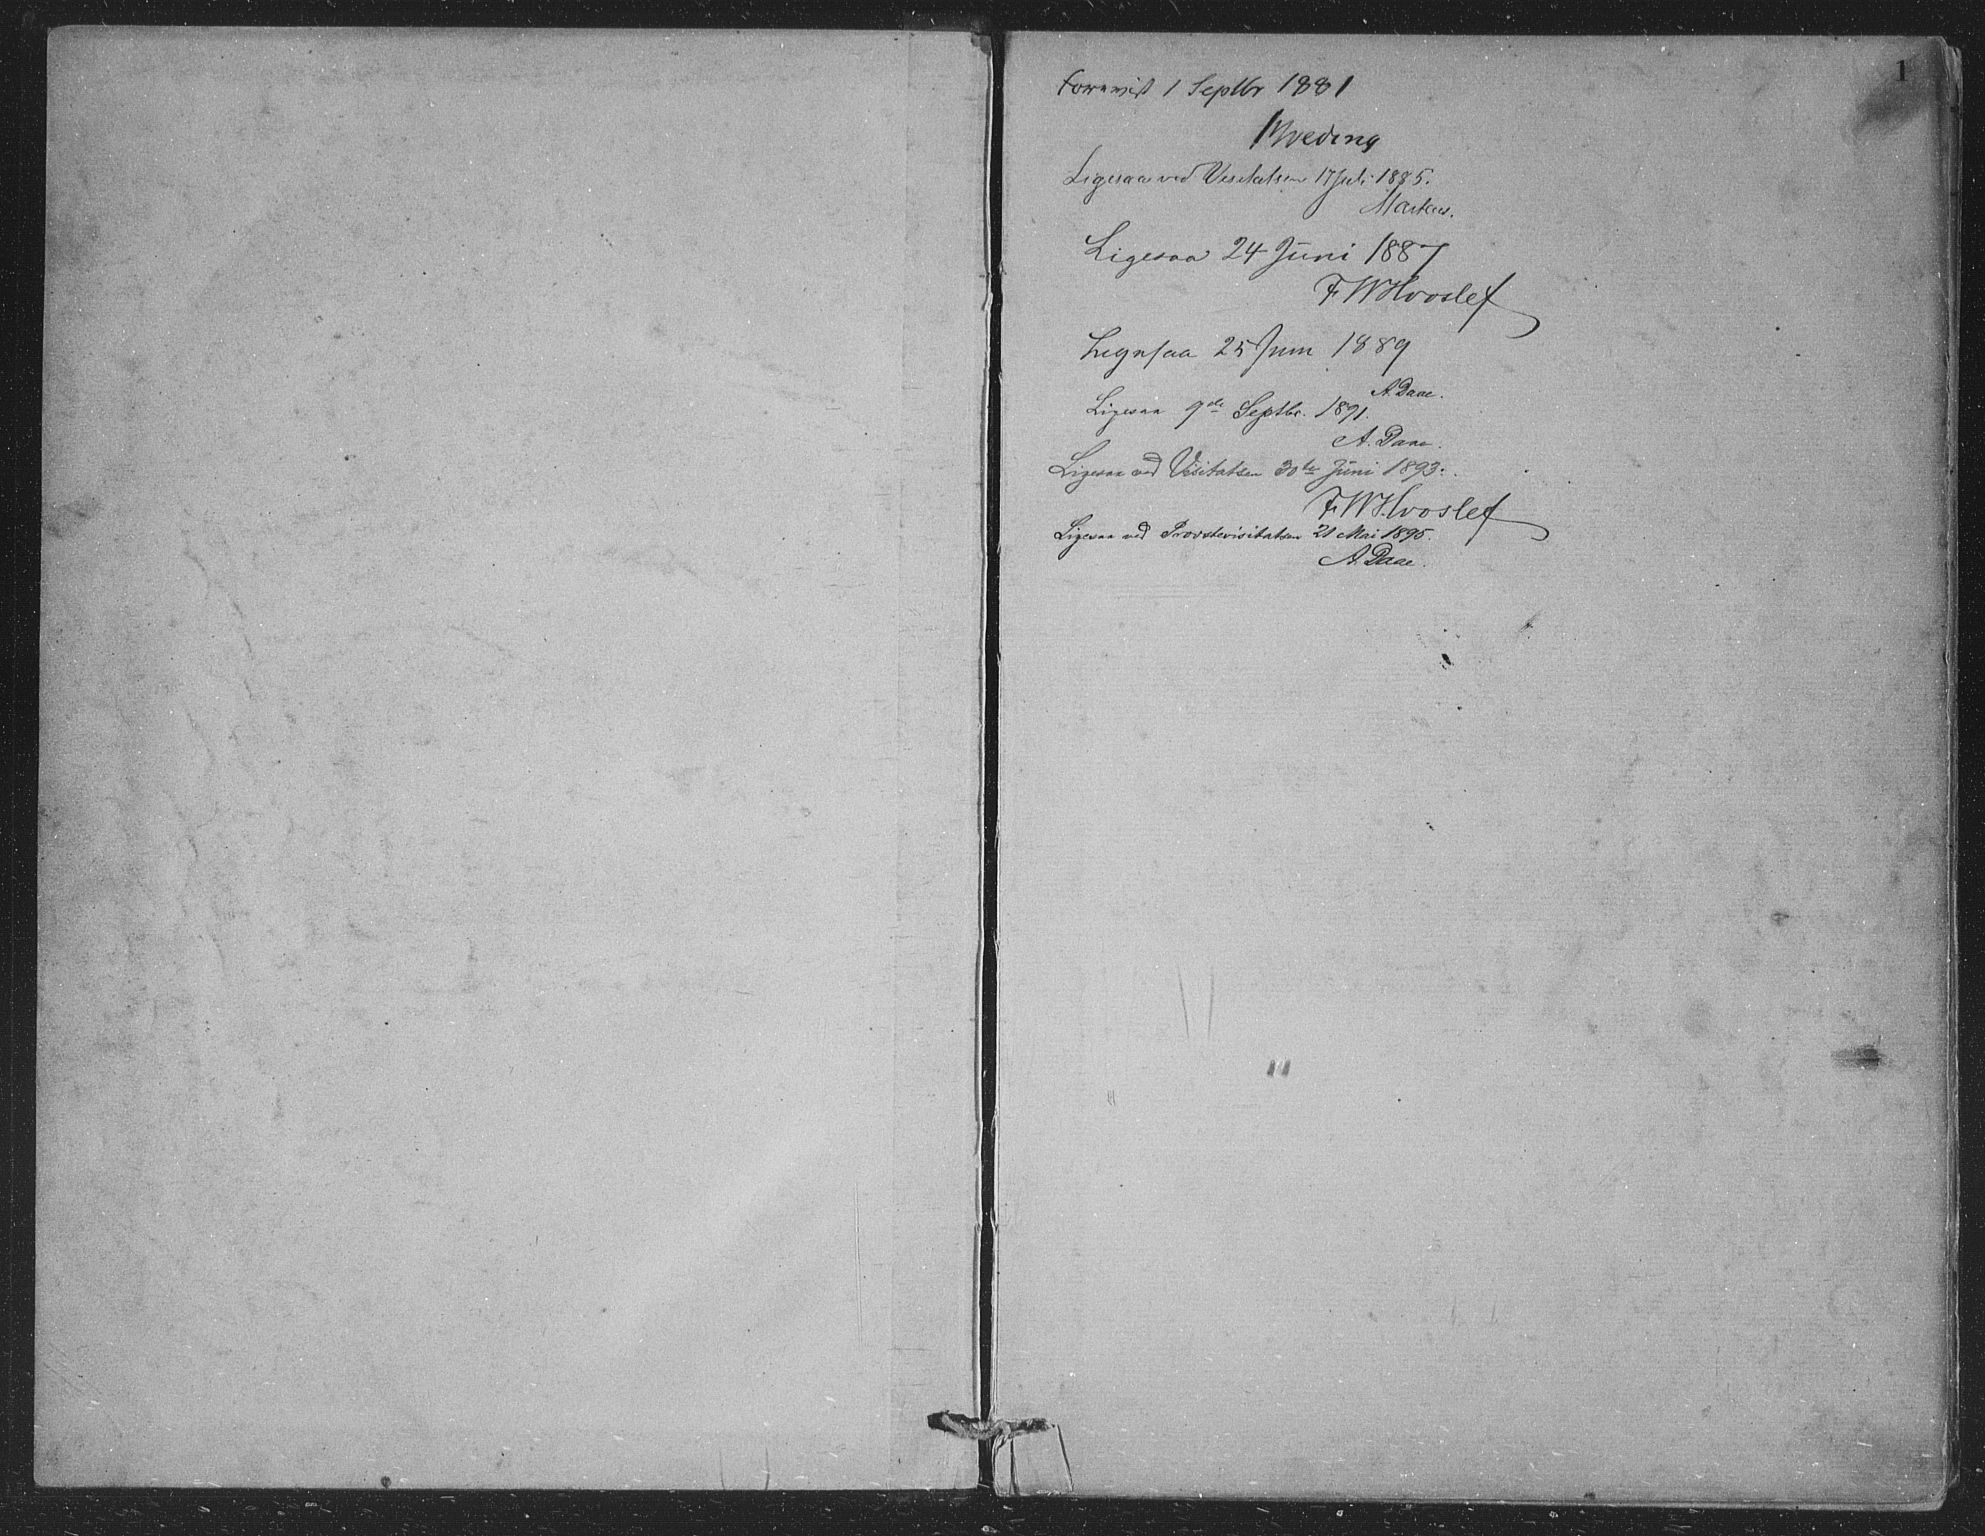 1
Forevist 1 Septbr 1881
Kveding
Ligesaa ved Visitatsen 17 Juli 1885.
Ligesaa 24 Juni 1887
F. W. Hvoslef
Ligesaa 25 Juni 1889
A. Daae.
Ligesaa 9de Septbr. 1891.
A. Daae.
Ligesaa ved Visitatsen 30te Juni 1893.
F. W. Hvoslef
Ligesaa ved Provstevisitatsen 21 Mai 1895.
A. Daae.